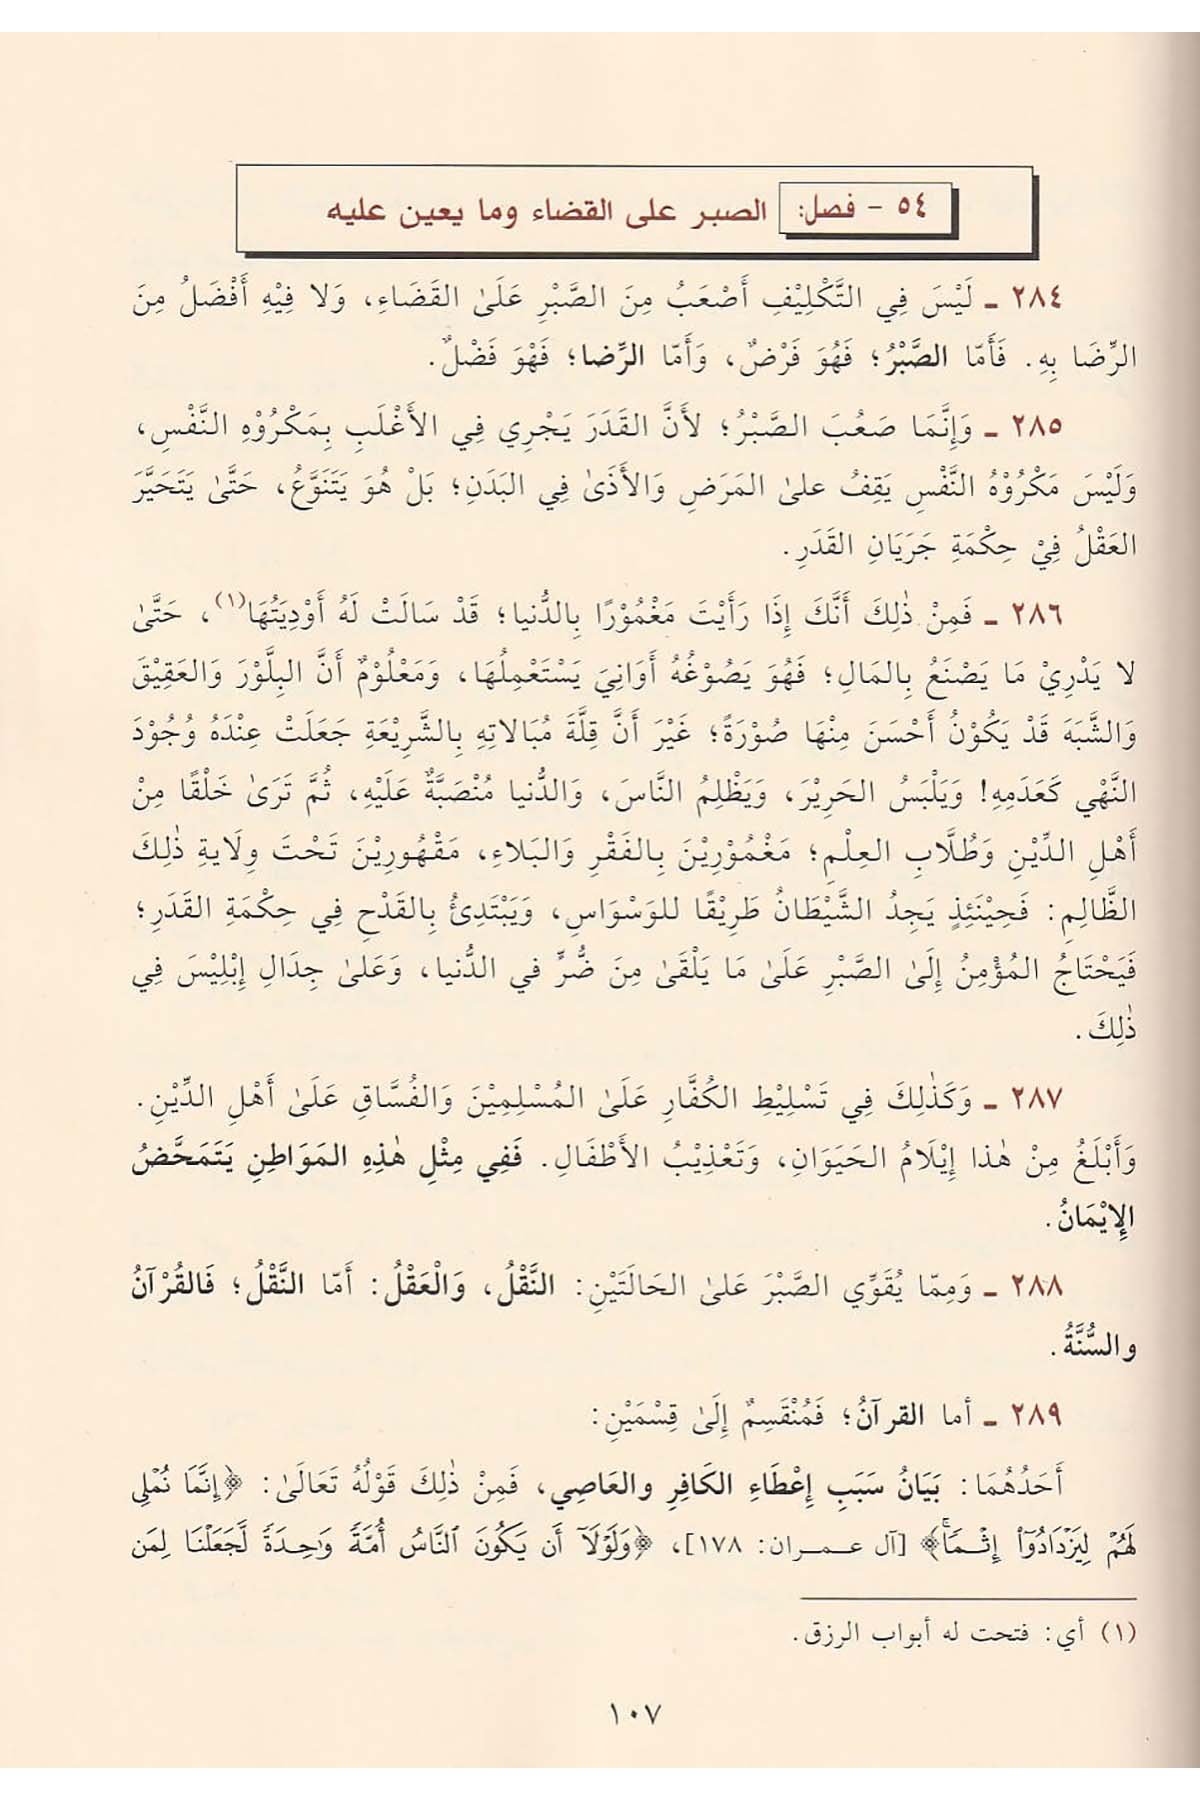 ٥٤ - فصل: الصبر على القضاء وما يعين عليه
٢٨٤ ـ لَيْسَ فِي التَّكْلِيْفِ أَصْعَبُ مِنَ الصَّبْرِ عَلَىٰ القَضَاءِ، وَلا فِيْهِ أَفْضَلُ مِنَ
الرِّضَا بِهِ. فَأَمَّا الصَّبْرُ؛ فَهُوَ فَرْضٌ، وَأَمَّا الرِّضا؛ فَهْوَ فَضْلٌ.
٢٨٥ ـ وَإِنَّمَا صَعُبَ الصَّبْرُ؛ لأَنَّ القَدَرَ يَجْرِي فِي الأَغْلَبِ بِمَكْرُوْهِ النَّفْسِ،
وَلَيْسَ مَكْرُوْهُ النَّفْسِ يَقِفُ علىٰ المَرَضِ وَالأَذَىٰ فِي البَدَنِ؛ بَلْ هُوَ يَتَنَوَّعُ، حَتَّىٰ يَتَحَيَّرَ
العَقْلُ فِيْ حِكْمَةِ جَرَيَانِ القَدَرِ.
٢٨٦ ـ فَمِنْ ذٰلِكَ أَنَّكَ إِذَا رَأَيْتَ مَغْمُوْرًا بِالدُّنيا؛ قَدْ سَالَتْ لَهُ أَوْدِيَتُهَا(١)، حَتَّىٰ
لا يَدْرِيْ مَا يَصْنَعُ بِالمَالِ؛ فَهُوَ يَصُوْغُهُ أَوَانِيَ يَسْتَعْمِلُهَا، وَمَعْلُوْمٌ أَنَّ البِلَّوْرَ وَالعَقِيْقَ
وَالشَّبَهَ قَدْ يَكُوْنُ أَحْسَنَ مِنْهَا صُوْرَةً؛ غَيْرَ أَنَّ قِلَّةَ مُبَالاتِهِ بِالشَّرِيْعَةِ جَعَلَتْ عِنْدَهُ وُجُوْدَ
النَّهْيِ كَعَدَمِهِ! وَيَلْبَسُ الحَرِيْرَ، وَيَظْلِمُ النَّاسَ، وَالدُّنيا مُنْصَبَّةٌ عَلَيْهِ، ثُمَّ تَرَىٰ خَلْقًا مِنْ
أَهْلِ الدِّيْنِ وَطُلَّابِ العِلْمِ؛ مَغْمُوْرِيْنَ بِالفَقْرِ وَالبَلاءِ، مَقْهُورِيْنَ تَحْتَ وِلَايةِ ذٰلِكَ
الظَّالِمِ: فَحِيْنَئِذٍ يَجِدُ الشَّيْطَانُ طَرِيْقًا للوَسْوَاسِ، وَيَبْتَدِئُ بِالقَدْحِ فِي حِكْمَةِ القَدَرِ؛
فَيَحْتَاجُ المُؤْمِنُ إِلَىٰ الصَّبْرِ عَلَىٰ مَا يَلْقَىٰ مِنَ ضُّرٍّ في الدُّنيا، وَعَلىٰ جِدَالِ إِبْلِيْسَ فِي
ذٰلِكَ.
٢٨٧ ـ وَكَذٰلِكَ فِي تَسْلِيْطِ الكُفَّارِ عَلَىٰ المُسْلِمِيْنَ وَالفُسَّاقِ عَلَىٰ أَهْلِ الدِّيْنِ.
وَأَبْلَغُ مِنْ هٰذا إِيْلَامُ الحَيَوَانِ، وَتَعْذِيْبُ الأَطْفَالِ. فَفِي مِثْلِ هٰذِهِ المَوَاطِنِ يَتَمَحَّضُ
الإِيْمَانُ.
٢٨٨ ـ وَمِمّا يُقَوِّي الصَّبْرَ عَلىٰ الحَالَتَيْنِ: النَّقْلُ، وَالْعَقْلُ: أَمّا النَّقْلُ؛ فَالقُرْآنُ
والسُّنَّةُ.
٢٨٩ ـ أما القرآنُ؛ فَمُنْقَسِمٌ إِلَىٰ قِسْمَيْنِ:
أَحَدُهُمَا: بَيَانُ سَبَبِ إِعْطَاءِ الكَافِرِ والعَاصِي، فَمِنْ ذٰلِكَ قَوْلُهُ تَعَالَىٰ: ﴿إِنَّمَا نُمْلِي
لَهُمْ لِيَزْدَادُوٓا۟ إِثْمًا﴾ [آل عمران: ١٧٨]، ﴿وَلَوْلَآ أَن يَكُونَ ٱلنَّاسُ أُمَّةً وَٰحِدَةً لَّجَعَلْنَا لِمَن
(١) أي: فتحت له أبواب الرزق.
١٠٧